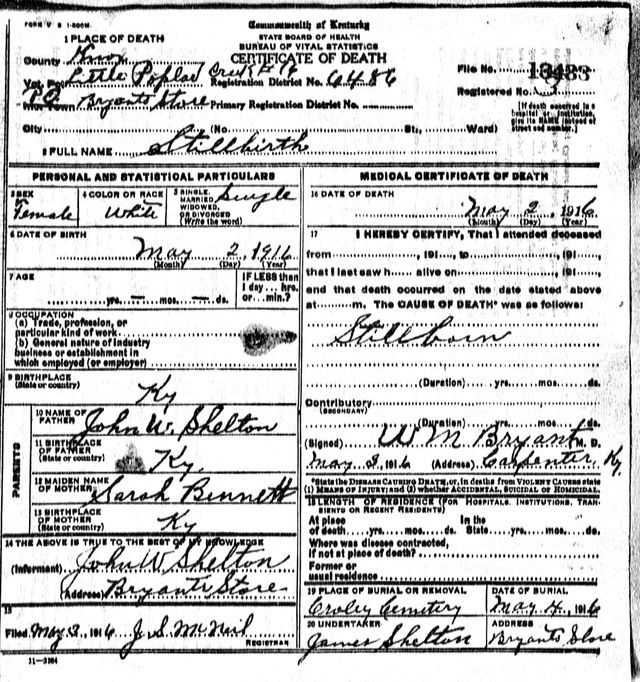 FORM V S 1-500M.
Commonwealth of Kentucky
STATE BOARD OF HEALTH
BUREAU OF VITAL STATISTICS
CERTIFICATE OF DEATH
1 PLACE OF DEATH
County Knox
Vot. Pct. Little Poplar Creek # 16 Registration District No. 6486
File No. 13433
P.O. Bryants Store Primary Registration District No.
Registered No.
City (No. St., Ward)
[If death occurred in a hospital or institution, give its NAME instead of street and number.]
2 FULL NAME Stillbirth
PERSONAL AND STATISTICAL PARTICULARS
3 SEX Female
4 COLOR OR RACE White
5 SINGLE, MARRIED, WIDOWED, OR DIVORCED (Write the word) Single
6 DATE OF BIRTH
May 2, 1916
(Month) (Day) (Year)
7 AGE
yrs. — mos. — ds.
IF LESS than 1 day ... hrs. or ... min.?
8 OCCUPATION
(a) Trade, profession, or
particular kind of work
(b) General nature of industry
business or establishment in
which employed (or employer)
9 BIRTHPLACE
(State or country) Ky
PARENTS
10 NAME OF FATHER John W. Shelton
11 BIRTHPLACE OF FATHER
(State or country) Ky.
12 MAIDEN NAME OF MOTHER Sarah Bennett
13 BIRTHPLACE OF MOTHER
(State or country) Ky
14 THE ABOVE IS TRUE TO THE BEST OF MY KNOWLEDGE
(Informant) John W Shelton
(Address) Bryants Store
15
Filed May 3, 1916 J. S. McNail
REGISTRAR
11-3184
MEDICAL CERTIFICATE OF DEATH
16 DATE OF DEATH
May 2, 1916
(Month) (Day) (Year)
17 I HEREBY CERTIFY, That I attended deceased
from , 191 , to , 191 ,
that I last saw h alive on , 191 ,
and that death occurred on the date stated above
at m. The CAUSE OF DEATH* was as follows:
Stillborn
(Duration) yrs. mos. ds.
Contributory
(SECONDARY)
(Duration) yrs. mos. ds.
(Signed) W M Bryant M. D.
May 3, 1916 (Address) Carpenter Ky.
*State the DISEASE CAUSING DEATH, or, in deaths from VIOLENT CAUSES state
(1) MEANS OF INJURY; and (2) whether ACCIDENTAL, SUICIDAL OF HOMICIDAL.
18 LENGTH OF RESIDENCE (FOR HOSPITALS, INSTITUTIONS, TRANSIENTS OR RECENT RESIDENTS)
At place of death yrs. mos. ds. In the State yrs. mos. ds.
Where was disease contracted,
if not at place of death?
Former or
usual residence
19 PLACE OF BURIAL OR REMOVAL
Croley Cemetery
DATE OF BURIAL
May 4, 1916
20 UNDERTAKER
James Shelton
ADDRESS
Bryants Store